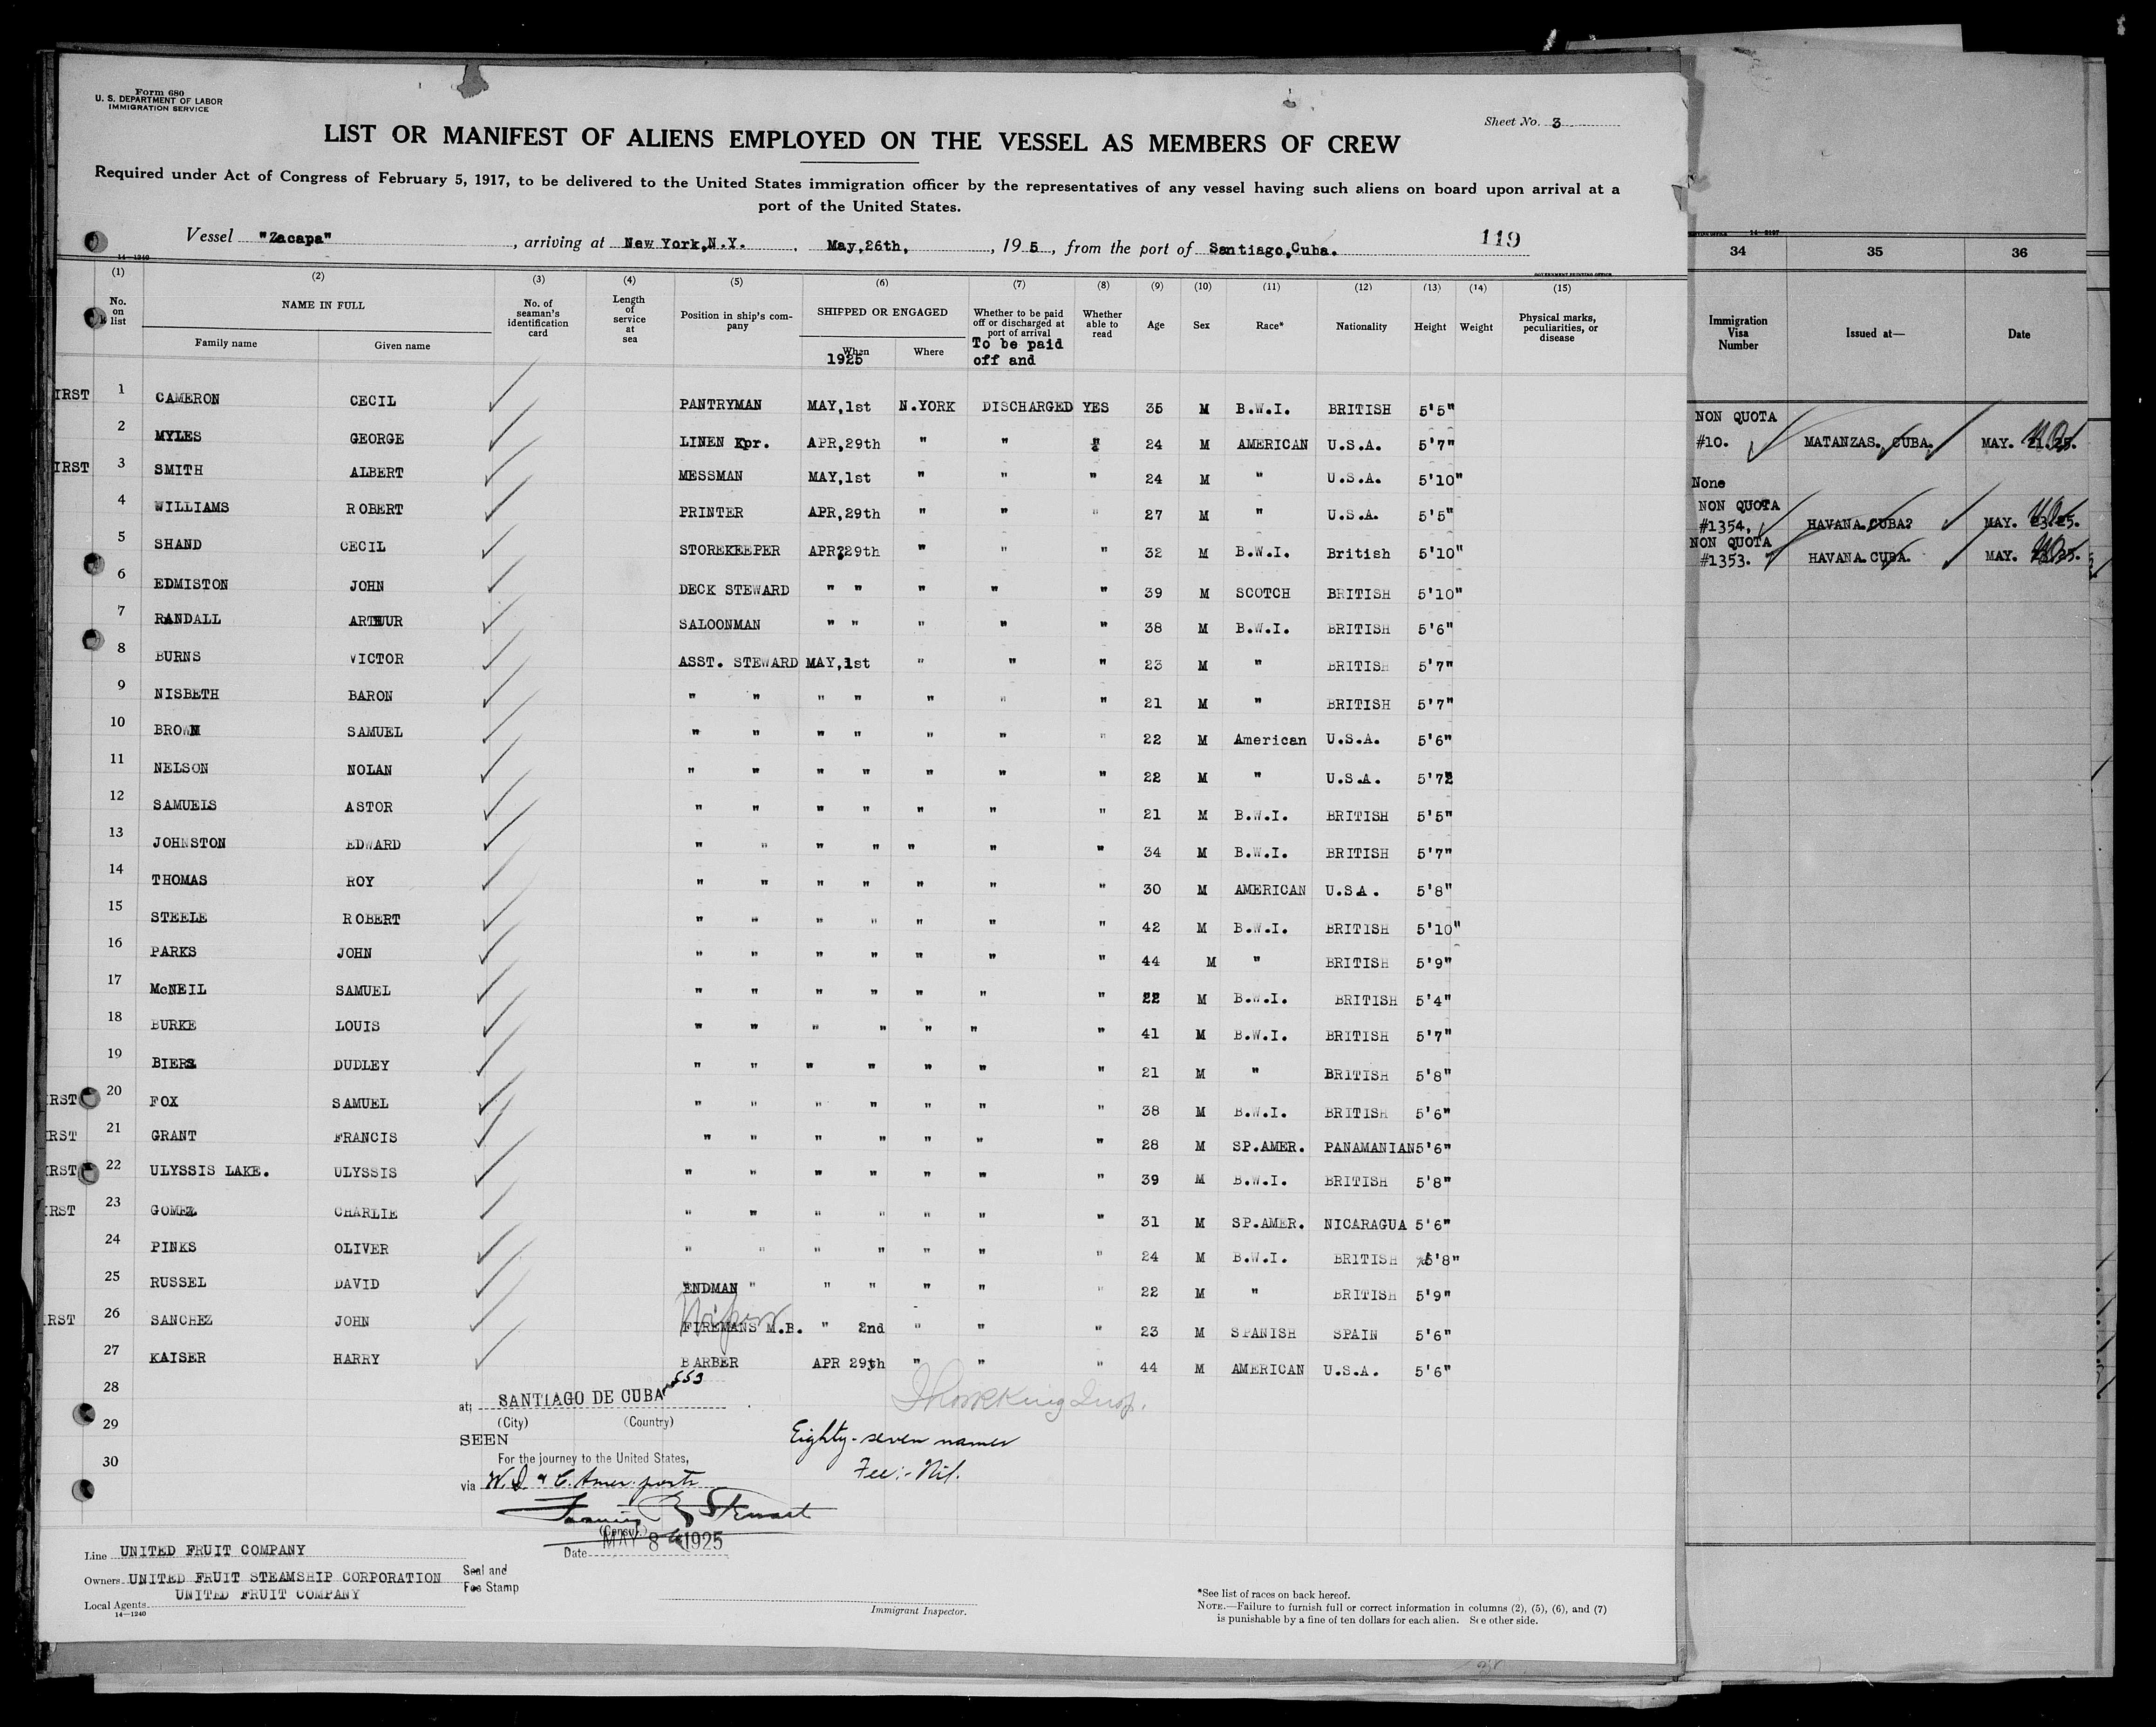 Form 680
U. S. DEPARTMENT OF LABOR
IMMIGRATION SERVICE
Sheet No. 3
LIST OR MANIFEST OF ALIENS EMPLOYED ON THE VESSEL AS MEMBERS OF CREW
Required under Act of Congress of February 5, 1917, to be delivered to the United States immigration officer by the representatives of any vessel having such aliens on board upon arrival at a
port of the United States.
Vessel "Zacapa", arriving at New York,N.Y. May,26th, , 19 5, from the port of Santiago,Cuba.
119
14—1240
GOVERNMENT PRINTING OFFICE
(1) (2) (3) (4) (5) (6) (7) (8) (9) (10) (11) (12) (13) (14) (15)
No. on list NAME IN FULL Family name Given name No. of seaman's identification card Length of service at sea Position in ship's company SHIPPED OR ENGAGED When 1925 Where Whether to be paid off or discharged at port of arrival To be paid off and Whether able to read Age Sex Race* Nationality Height Weight Physical marks, peculiarities, or disease
IRST 1 CAMERON CECIL PANTRYMAN MAY,1st N.YORK DISCHARGED YES 35 M B.W.I. BRITISH 5'5"
2 MYLES GEORGE LINEN Kpr. APR,29th " " " 24 M AMERICAN U.S.A. 5'7"
IRST 3 SMITH ALBERT MESSMAN MAY,1st " " " 24 M " U.S.A. 5'10"
4 WILLIAMS ROBERT PRINTER APR,29th " " " 27 M " U.S.A. 5'5"
5 SHAND CECIL STOREKEEPER APR,29th " " " 32 M B.W.I. British 5'10"
6 EDMISTON JOHN DECK STEWARD " " " " " 39 M SCOTCH BRITISH 5'10"
7 RANDALL ARTHUR SALOONMAN " " " " " 38 M B.W.I. BRITISH 5'6"
8 BURNS VICTOR ASST. STEWARD MAY,1st " " " 23 M " BRITISH 5'7"
9 NISBETH BARON " " " " " " " 21 M " BRITISH 5'7"
10 BROWN SAMUEL " " " " " " " 22 M American U.S.A. 5'6"
11 NELSON NOLAN " " " " " " " 22 M " U.S.A. 5'7
12 SAMUELS ASTOR " " " " " " " 21 M B.W.I. BRITISH 5'5"
13 JOHNSTON EDWARD " " " " " " " 34 M B.W.I. BRITISH 5'7"
14 THOMAS ROY " " " " " " " 30 M AMERICAN U.S.A. 5'8"
15 STEELE ROBERT " " " " " " " 42 M B.W.I. BRITISH 5'10"
16 PARKS JOHN " " " " " " " 44 M " BRITISH 5'9"
17 McNEIL SAMUEL " " " " " " " 22 M B.W.I. BRITISH 5'4"
18 BURKE LOUIS " " " " " " " 41 M B.W.I. BRITISH 5'7"
19 BIERS DUDLEY " " " " " " " 21 M " BRITISH 5'8"
IRST 20 FOX SAMUEL " " " " " " " 38 M B.W.I. BRITISH 5'6"
IRST 21 GRANT FRANCIS " " " " " " " 28 M SP.AMER. PANAMANIAN 5'6"
IRST 22 ULYSSIS LAKE. ULYSSIS " " " " " " " 39 M B.W.I. BRITISH 5'8"
IRST 23 GOMEZ CHARLIE " " " " " " " 31 M SP.AMER. NICARAGUA 5'6"
24 PINKS OLIVER " " " " " " " 24 M B.W.I. BRITISH 5'8"
25 RUSSEL DAVID ENDMAN " " " " " " 22 M " BRITISH 5'9"
IRST 26 SANCHEZ JOHN Wiper FIREMANS M.B. " 2nd " " " 23 M SPANISH SPAIN 5'6"
27 KAISER HARRY BARBER APR 29th " " " 44 M AMERICAN U.S.A. 5'6"
28
29
30
553
at; SANTIAGO DE CUBA
(City) (Country)
SEEN
For the journey to the United States,
via W.I. & C. Amer. ports
Eighty-seven names
Fee:- Nil.
Stewart
(Consul)
Date MAY 8 1925
Line UNITED FRUIT COMPANY
Owners UNITED FRUIT STEAMSHIP CORPORATION
Local Agents UNITED FRUIT COMPANY
14—1240
Seal and
Fee Stamp
Immigrant Inspector.
*See list of races on back hereof.
NOTE.—Failure to furnish full or correct information in columns (2), (5), (6), and (7)
is punishable by a fine of ten dollars for each alien. See other side.
34 35 36
Immigration Visa Number Issued at— Date
NON QUOTA
#10. MATANZAS. CUBA. MAY. 21.25.
None
NON QUOTA
#1354, HAVANA.CUBA? MAY. 23.25.
NON QUOTA
#1353. HAVANA.CUBA. MAY. 23.25.